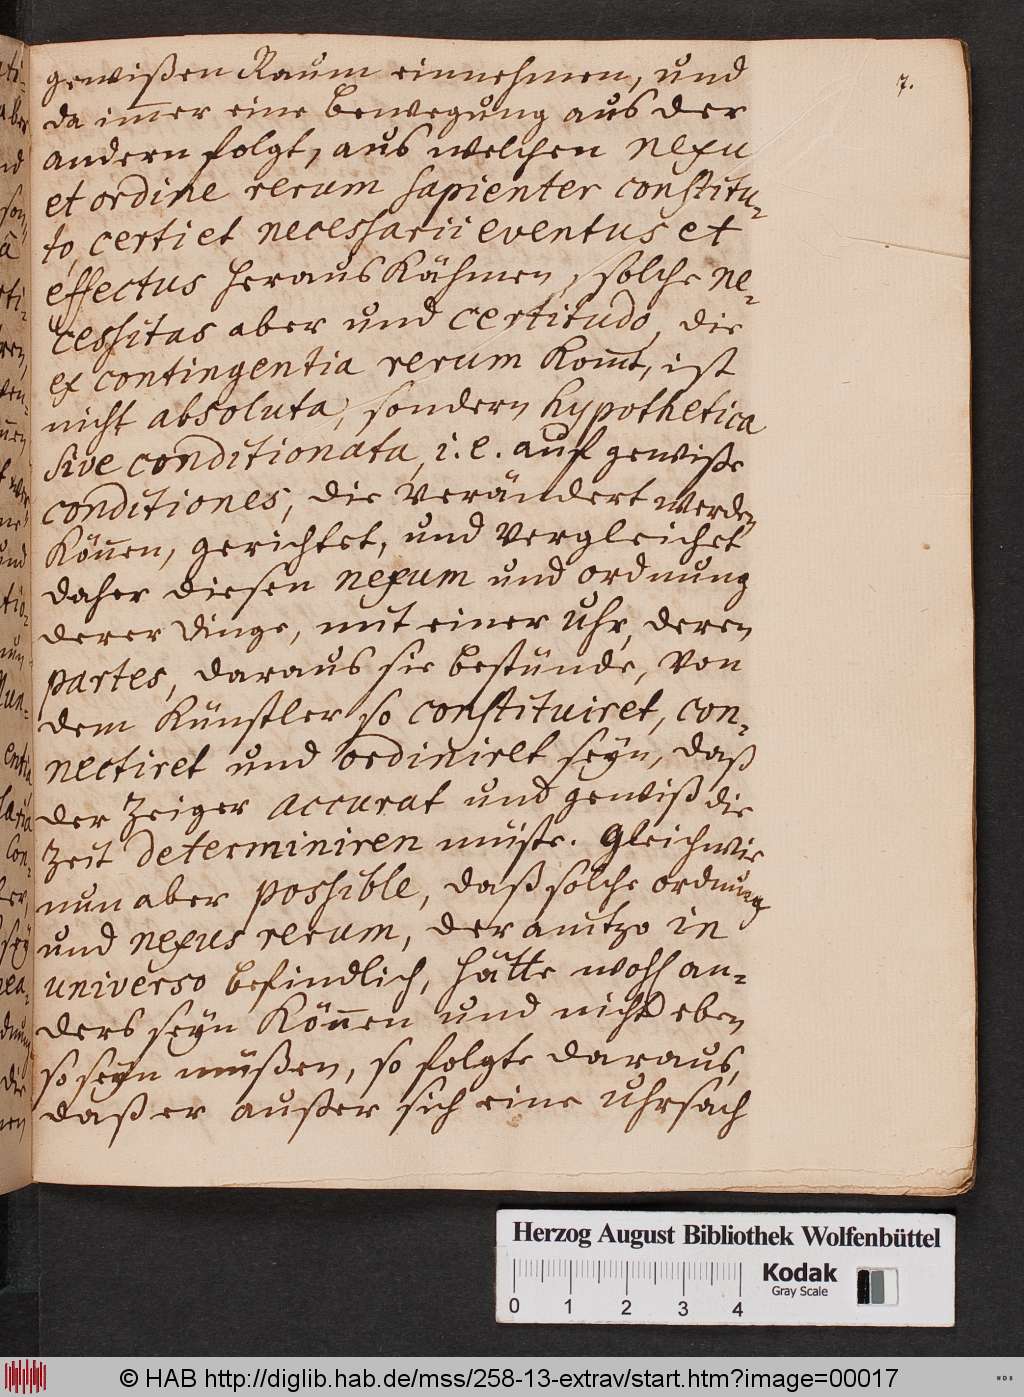 7.
gewißen Raum einnehmen, und
da im̅er eine bewegung aus der
andern folgt, aus welchen nexu
et ordine rerum sapienter constitu-
to, certi et necessarii eventus et
effectus heraus kähmen, solche ne-
cessitas aber und certitudo, die
ex contingentia rerum kom̅t, ist
nicht absoluta, sondern hypothetica
sive conditionata, i. e. auf gewiße
conditiones, die verändert werden
kön̅en, gerichtet, und vergleichet
daher diesen nexum und ordnung
derer Dinge, mit einer Uhr, deren
partes, daraus sie bestünde, von
dem Künstler so constituiret, con-
nectiret und ordiniret seyn, daß
der Zeiger accurat und gewiß die
Zeit determiniren müste. Gleichwie
nun aber possible, daß solche ordnung
und nexus rerum, der anitzo in
universo befindlich, hätte wohl an-
ders seyn kön̅en und nicht eben
so seyn müßen, so folgte daraus,
daß er außer sich eine Uhrsach
Herzog August Bibliothek Wolfenbüttel
0 1 2 3 4
Kodak
Gray Scale
© HAB http://diglib.hab.de/mss/258-13-extrav/start.htm?image=00017